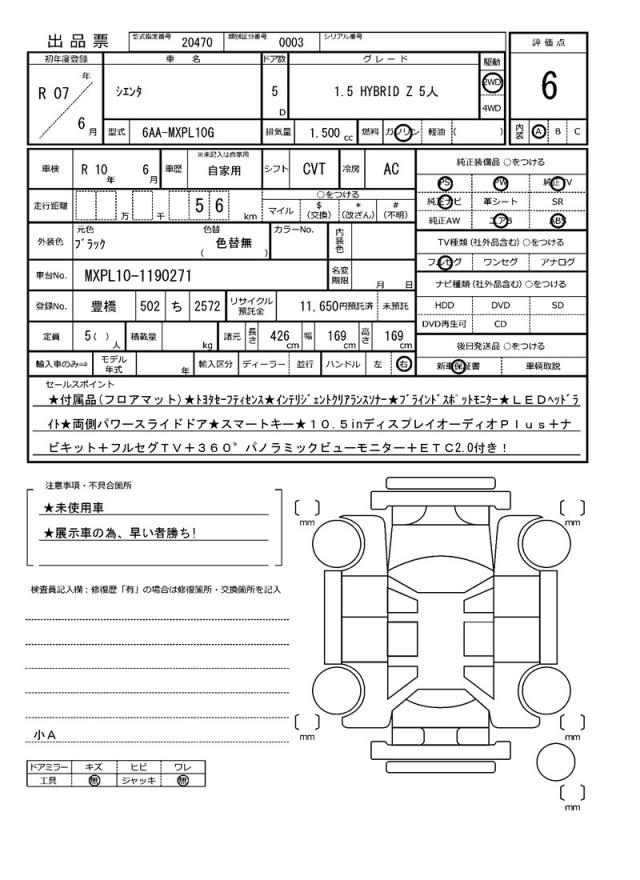 出品票
型式指定番号 20470 類別区分番号 0003 シリアル番号
評価点
初年度登録 車名 ドア数 グレード 駆動
R 07 年 6 月
シエンタ 5 D 1.5 HYBRID Z 5人 2WD 4WD
6
型式 6AA-MXPL10G 排気量 1,500 cc 燃料 ガソリン 軽油 ( )
内装 A B C
車検 R 10 年 6 月 車歴 ※未記入は自家用 自家用 シフト CVT 冷房 AC
純正装備品 ○をつける
PS PW 純正TV
純正ナビ 革シート SR
純正AW エアB ABS
走行距離 万 千 5 6 km
○をつける
マイル $ (交換) * (改ざん) # (不明)
TV種類 (社外品含む) ○をつける
フルセグ ワンセグ アナログ
外装色 元色 ブラック 色替 ( 色替無 ) カラーNo. 内装色
車台No. MXPL10-1190271 名変期限 月 日
ナビ種類 (社外品含む) ○をつける
HDD DVD SD
DVD再生可 CD
登録No. 豊橋 502 ち 2572 リサイクル預託金 11,650円預託済 未預託
定員 5( ) 人 積載量 kg 諸元 長さ 426 cm 幅 169 cm 高さ 169 cm
後日発送品 ○をつける
新車保証書 車輌取説
輸入車のみ⇒ モデル年式 年 輸入区分 ディーラー 並行 ハンドル 左 右
セールスポイント
★付属品(フロアマット)★トヨタセーフティセンス★インテリジェントクリアランスソナー★ブラインドスポットモニター★LEDヘッドラ
イト★両側パワースライドドア★スマートキー★10.5inディスプレイオーディオPlus+ナ
ビキット+フルセグTV+360°パノラミックビューモニター+ETC2.0付き!
注意事項・不具合箇所
★未使用車
★展示車の為、早い者勝ち!
検査員記入欄:修復歴「有」の場合は修復箇所・交換箇所を記入
小A
ドアミラー キズ ヒビ ワレ
工具 無 ジャッキ 無
[ ] mm
[ ] mm
[ ] mm
[ ] mm
[ ] mm